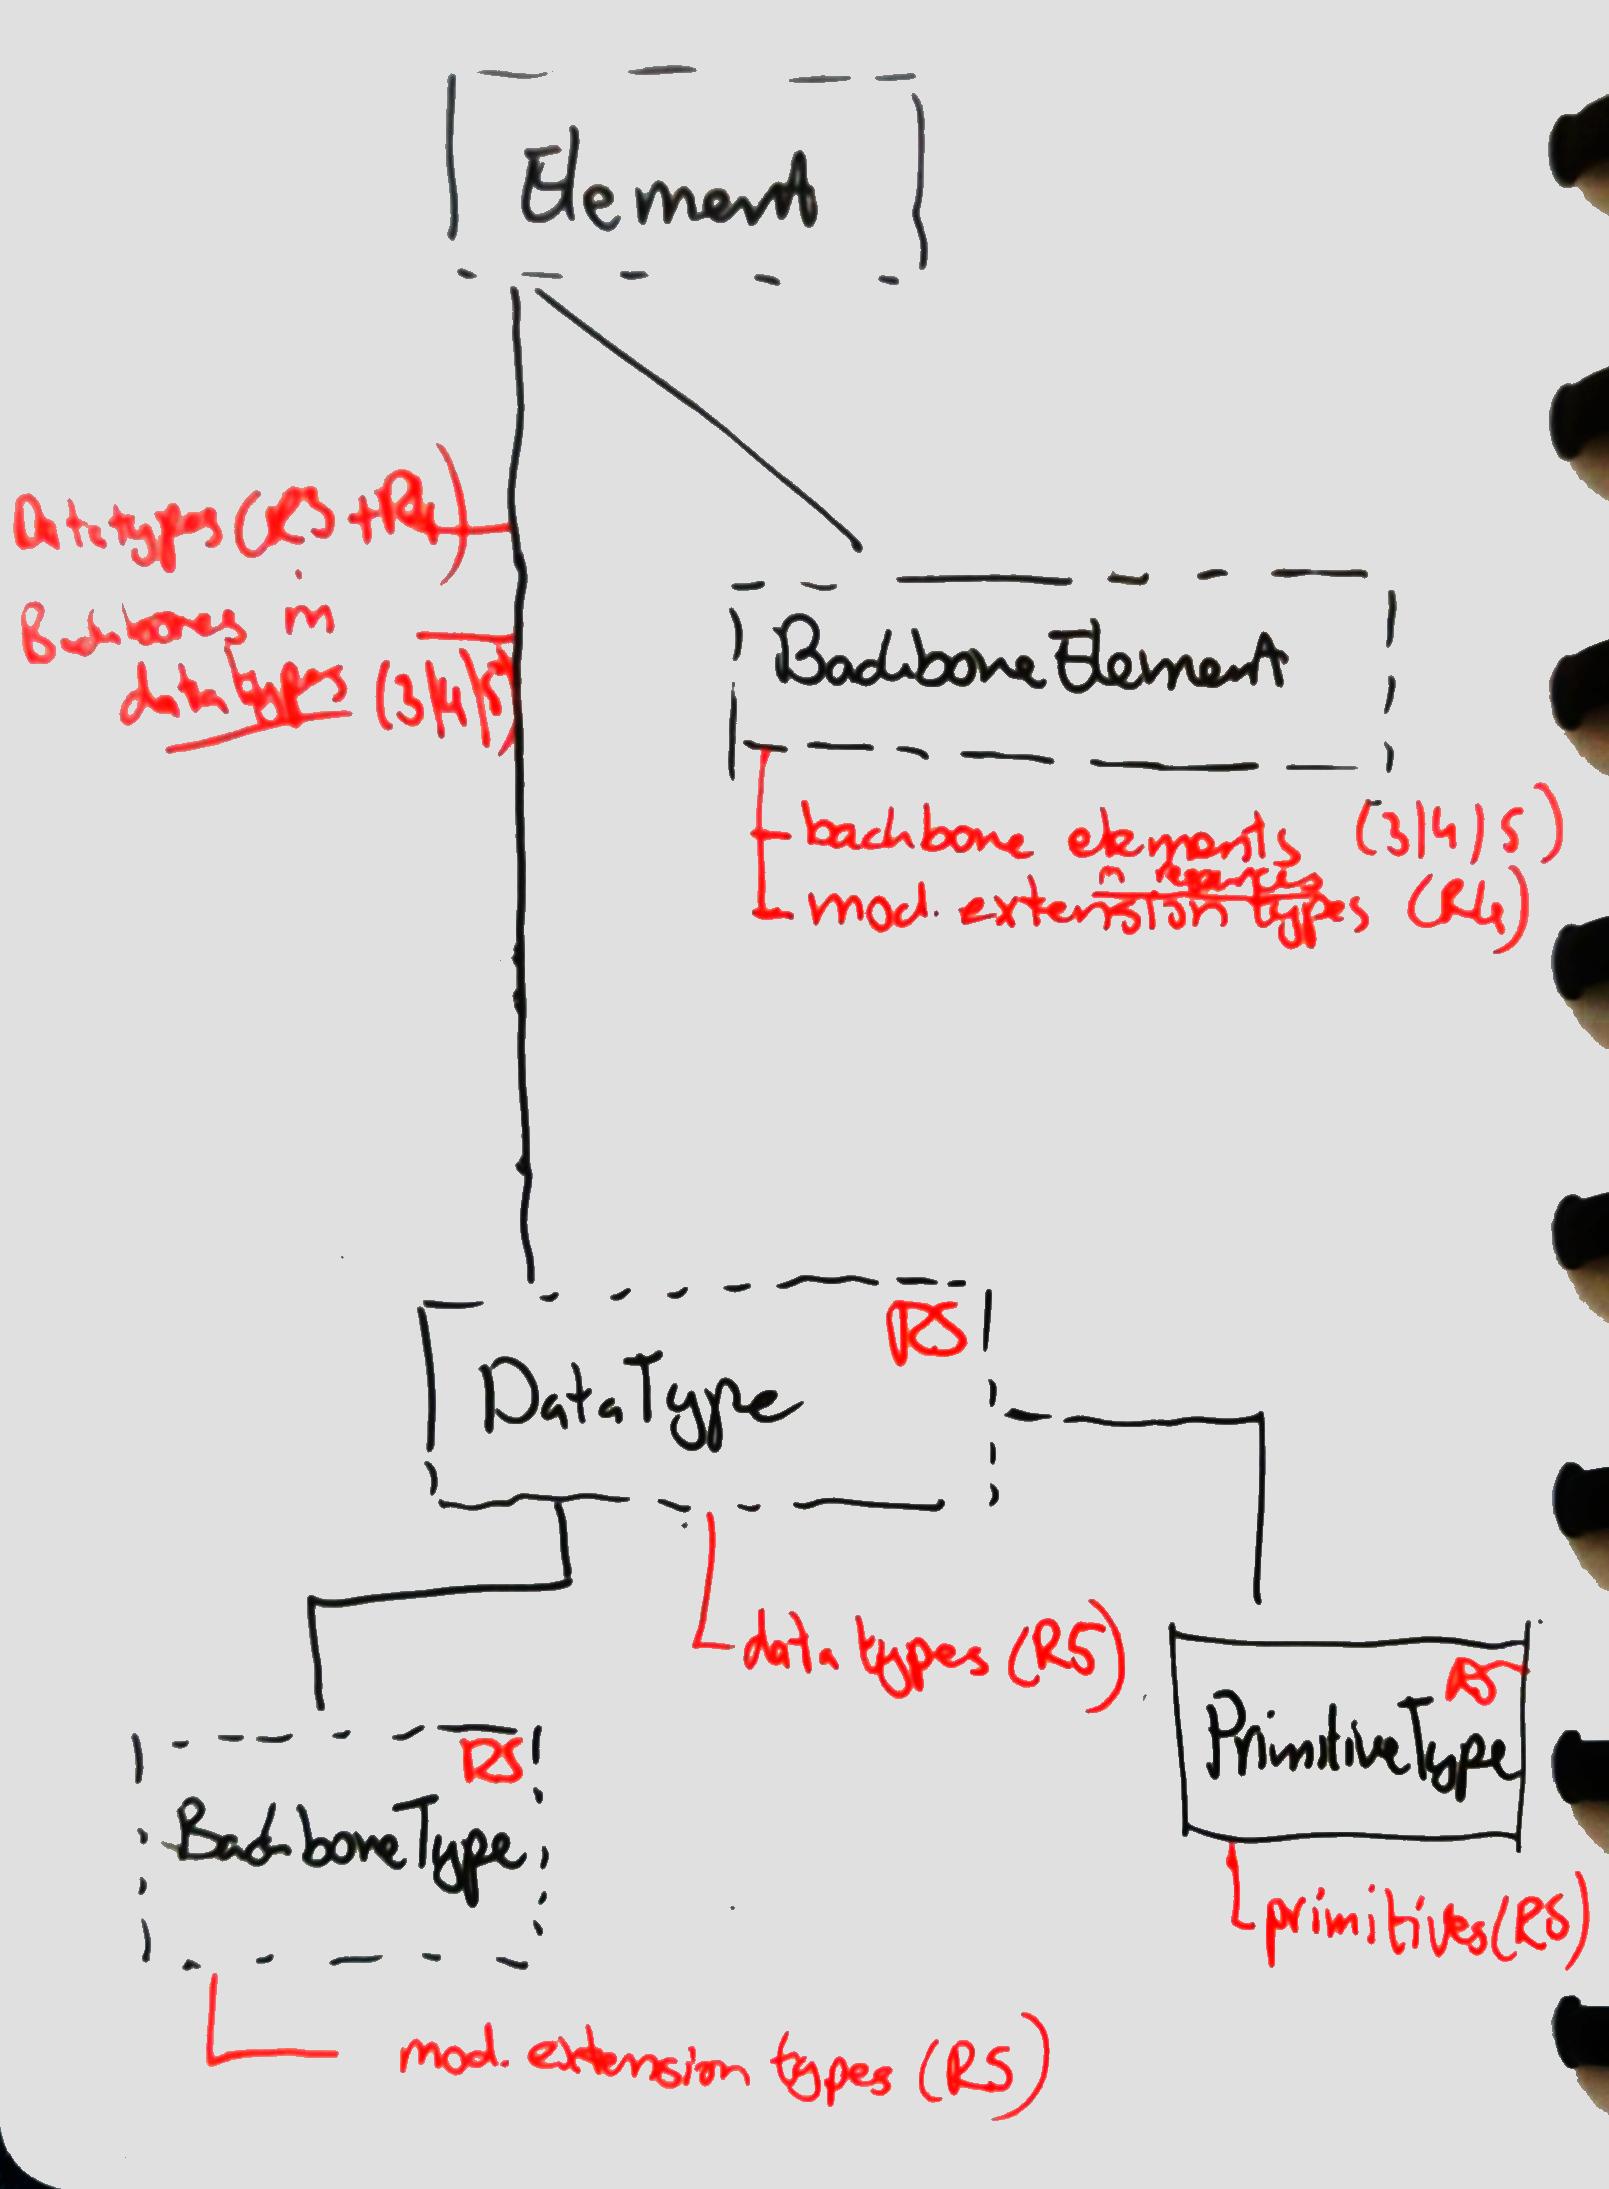 Element
Datatypes (R3 + R4)
Backbones in
data types (3|4|5)
BackboneElement
backbone elements (3|4|5)
in resources
mod. extension types (R4)
R5
DataType
data types (R5)
R5
PrimitiveType
primitives (R5)
R5
BackboneType
mod. extension types (R5)